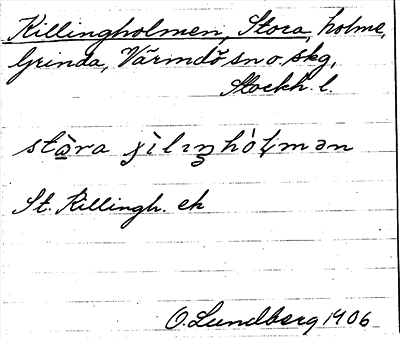 Killingholmen, Stora, holme,
Grinda, Värmdö sn o. skg,
Stockh. l.
St. Killingh. ek
O. Lundberg 1906